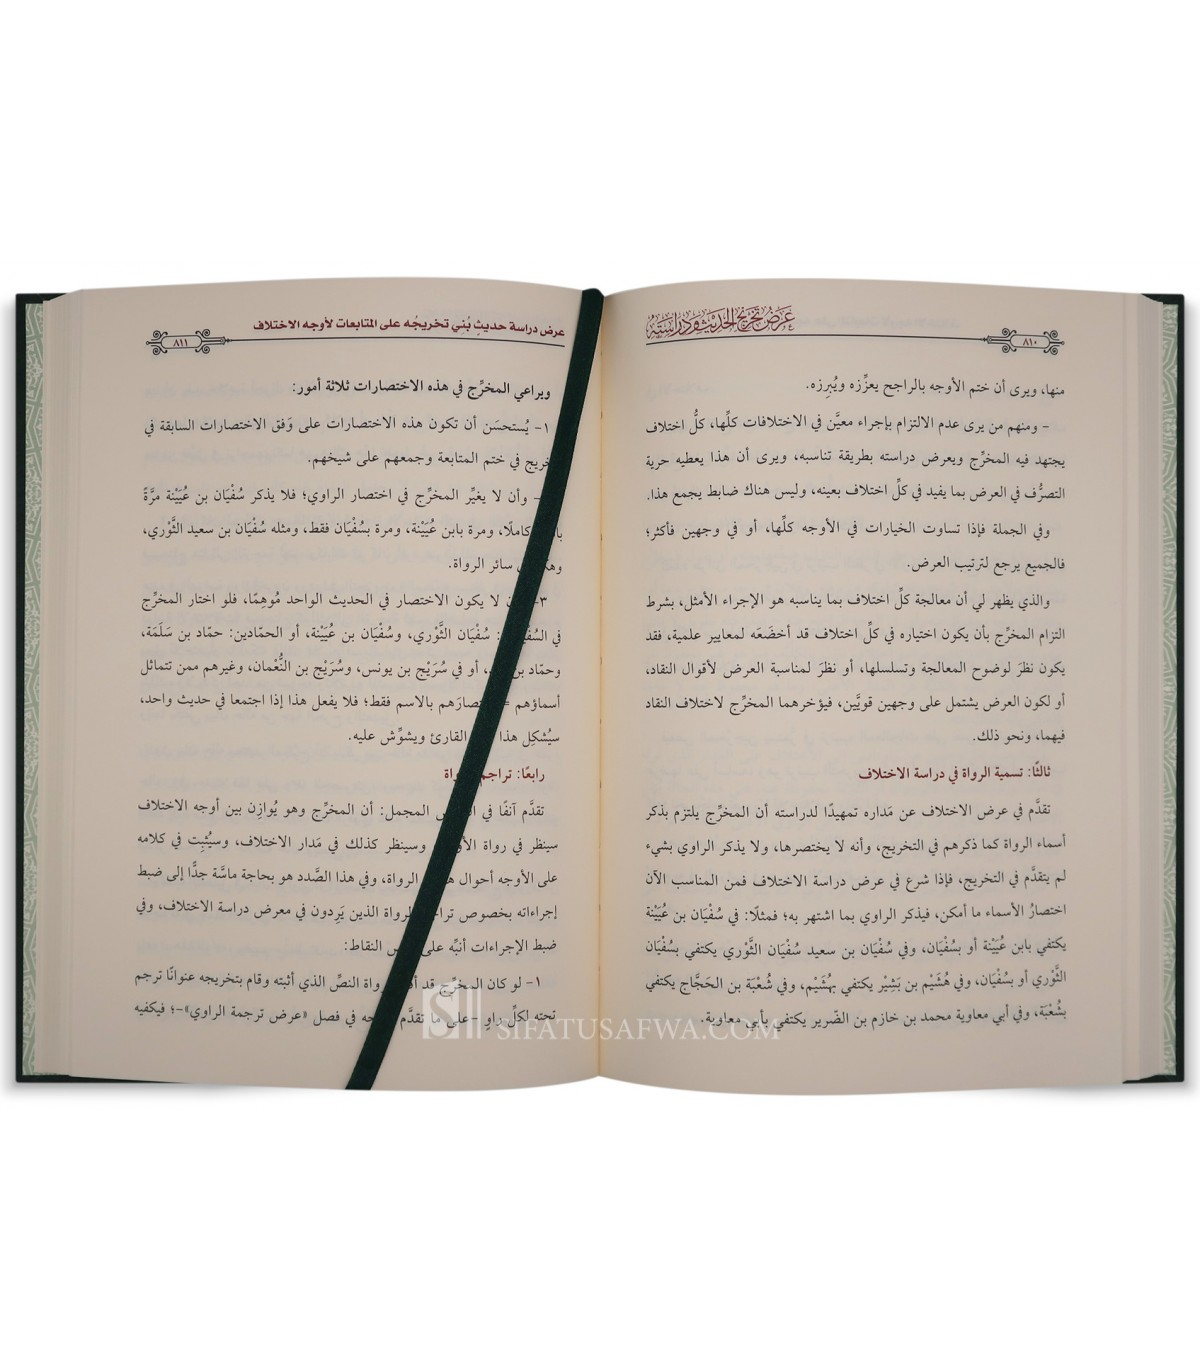 عَرْضُ تَخْرِيجِ الحَدِيثِ وَدِرَاسَتِهِ
٨١٠
منها، ويرى أن ختم الأوجه بالراجح يعزِّزه ويُبرِزه.
- ومنهم من يرى عدم الالتزام بإجراء معيَّن في الاختلافات كلِّها، كلُّ اختلاف
يجتهد فيه المخرِّج ويعرض دراسته بطريقة تناسبه، ويرى أن هذا يعطيه حرية
التصرُّف في العرض بما يفيد في كلِّ اختلاف بعينه، وليس هناك ضابط يجمع هذا.
وفي الجملة فإذا تساوت الخيارات في الأوجه كلِّها، أو في وجهين فأكثر؛
فالجميع يرجع لترتيب العرض.
والذي يظهر لي أن معالجة كلِّ اختلاف بما يناسبه هو الإجراء الأمثل، بشرط
التزام المخرِّج بأن يكون اختياره في كلِّ اختلاف قد أخضَعَه لمعايير علمية، فقد
يكون نظرَ لوضوح المعالجة وتسلسلها، أو نظرَ لمناسبة العرض لأقوال النقاد،
أو لكون العرض يشتمل على وجهين قويَّين، فيؤخرهما المخرِّج لاختلاف النقاد
فيهما، ونحو ذلك.
ثالثًا: تسمية الرواة في دراسة الاختلاف
تقدَّم في عرض الاختلاف عن مَداره تمهيدًا لدراسته أن المخرِّج يلتزم بذكر
أسماء الرواة كما ذكرهم في التخريج، وأنه لا يختصرها، ولا يذكر الراوي بشيء
لم يتقدَّم في التخريج، فإذا شرع في عرض دراسة الاختلاف فمن المناسب الآن
اختصارُ الأسماء ما أمكن، فيذكر الراوي بما اشتهر به؛ فمثلًا: في سُفْيَان بن عُيَيْنة
يكتفي بابن عُيَيْنة أو بسُفْيَان، وفي سُفْيَان بن سعيد سُفْيَان الثَّوْري يكتفي بسُفْيَان
الثَّوْري أو بسُفْيَان، وفي هُشَيْم بن بَشِيْر يكتفي بهُشَيْم، وفي شُعْبَة بن الحَجَّاج يكتفي
بشُعْبَة، وفي أبي معاوية محمد بن خازم بن الضّرير يكتفي بأبي معاوية.
عرض دراسة حديثٍ بُني تخريجُه على المتابعات لأوجه الاختلاف
٨١١
ويراعي المخرِّج في هذه الاختصارات ثلاثة أمور:
١- يُستحسَن أن تكون هذه الاختصارات على وَفق الاختصارات السابقة في
خريج في ختم المتابعة وجمعهم على شيخهم.
- وأن لا يغيِّر المخرِّج في اختصار الراوي؛ فلا يذكر سُفْيَان بن عُيَيْنة مرَّةً
كاملًا، ومرة بابن عُيَيْنة، ومرة بسُفْيَان فقط، ومثله سُفْيَان بن سعيد الثَّوْري،
سائر الرواة.
٣- لا يكون الاختصار في الحديث الواحد مُوهِمًا، فلو اختار المخرِّج
في : سُفْيَان الثَّوْري، وسُفْيَان بن عُيَيْنة، أو الحمّادين: حمّاد بن سَلَمَة،
وحمّاد بن ، أو في سُرَيْج بن يونس، وسُرَيْج بن النُّعْمان، وغيرهم ممن تتماثل
أسماؤهم = بالاسم فقط؛ فلا يفعل هذا إذا اجتمعا في حديث واحد،
سيُشكِل هذا القارئ ويشوِّش عليه.
رابعًا: تراجم
تقدَّم آنفًا في المجمل: أن المخرِّج وهو يُوازِن بين أوجه الاختلاف
سينظر في رواة وسينظر كذلك في مَدار الاختلاف، وسيُثبِت في كلامه
على الأوجه أحوال الرواة، وفي هذا الصَّدد هو بحاجة ماسَّة جدًّا إلى ضبط
إجراءاته بخصوص لرواة الذين يَرِدون في معرض دراسة الاختلاف، وفي
ضبط الإجراءات أنبِّه على النقاط:
١- لو كان المخرِّج قد لرواة النصِّ الذي أثبته وقام بتخريجه عنوانًا ترجم
تحته لكلِّ راو -على ما تقدَّم في فصل «عرض ترجمة الراوي»-؛ فيكفيه
SIFATUSAFWA.COM